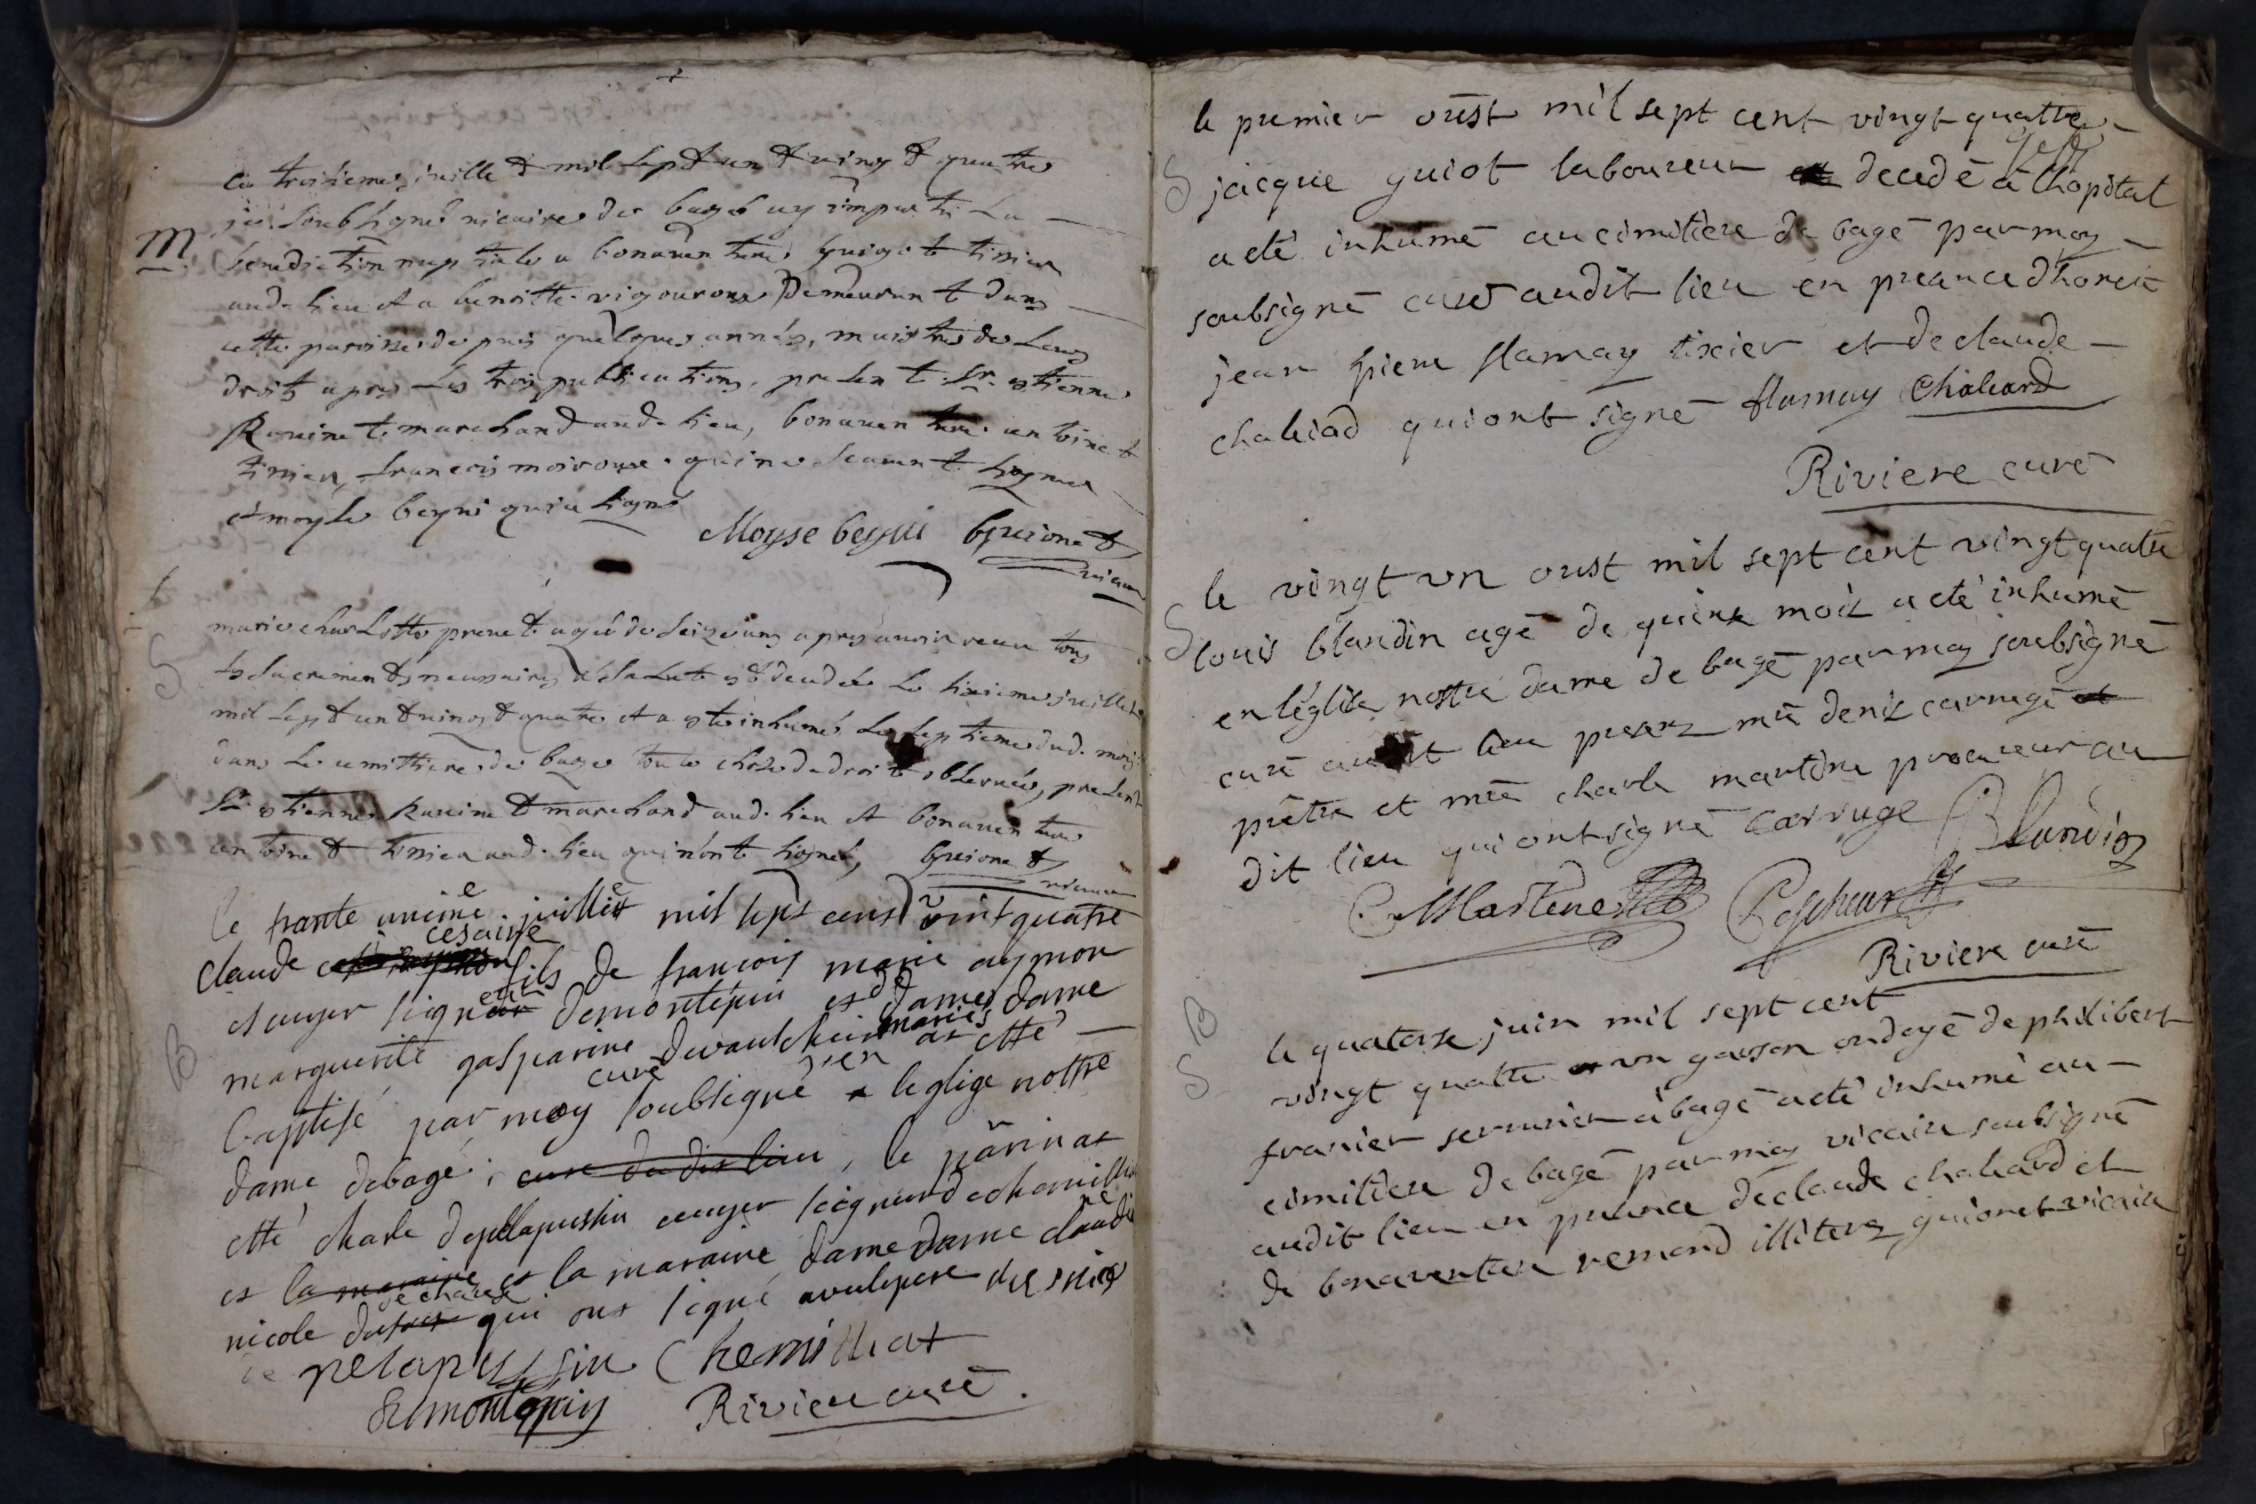 ce troisieme juille t mil sept cen t ving t quatre
je soubsigné vicaire de bagé ay imparti la
M
benediction nuptiale a bonaventure tissier
aud. lieu et a benoitte vigouroux demeuran t dans
cette paroisse depuis quelques années, maistre de leurs
droits apres les trois publications, presen t Sr. estienne
marchand aud. lieu, bonaventure antoine t
tissier, francois qui ne scaven t signer
et moyse beyni qui a signé
Moyse beyni Guione t
vicaire
S
marie charlotte prene t agée de seize ans apres avoir receu tous
les sacremen ts necessaires a salut est decedée le sixieme juille t
mil sept cen t ving t quatre et a este inhumée le septieme dud. mois
dans le cemittiere de bagé toute chose de droit observée, presen t
Sr. estienne marchand aud. lieu et bonaventure
antoine t tissier aud. lieu qui n'ont signé, Guione t
vicaire
le trante unieme juillet mil sept cens vint quatre
cesaire
claude fils de francois marie aymon
B
escuyer seigneur demontépin et de dame dame
marguerite gasparine devaulchier mariés at etté
baptisé par moy curé soubsigné en leglige nottre
dame debagé, cure du dit lieu, le pârin at
etté charle depelapussin ecuyer seigneur dechemillat
et la maraine et la maraine dame dame claudine
nicole de chaise qui ont signé avec le pere
de pelapussin Chemillat
demontepin Riviere curé.
le premier oust mil sept cent vingt quattre
S jacque guiot laboureur decedé a lhopital
a eté inhumé au cimitiere de bagé par moy
soubsigné curé audit lieu en presance dhonete
jean piere flamay tixier et de claude
chaliad qui ont signé flamay Chaliard
Riviere curé
le vingt un oust mil sept cent vingt quatre
S louis blandin agé de quinze mois a eté inhumé
en léglise nostre dame de bagé par moy soubsigné
curé audit lieu presenz mre deniz carruge
prêtre et mre charle martine procureur au
dit lieu qui ont signé carruge Blandin
C Martene Pescheur
Riviere curé
B
le quatorse juin mil sept cent
S
vingt quattre un garson ondoyé de philibert
franier serrurier a bagé a eté inhumé au
cimitiere de bagé par moy vicaire soubsigné
audit lieu en presance de claude chaliard et
de bonaventure remond illiterez guionet vicaire